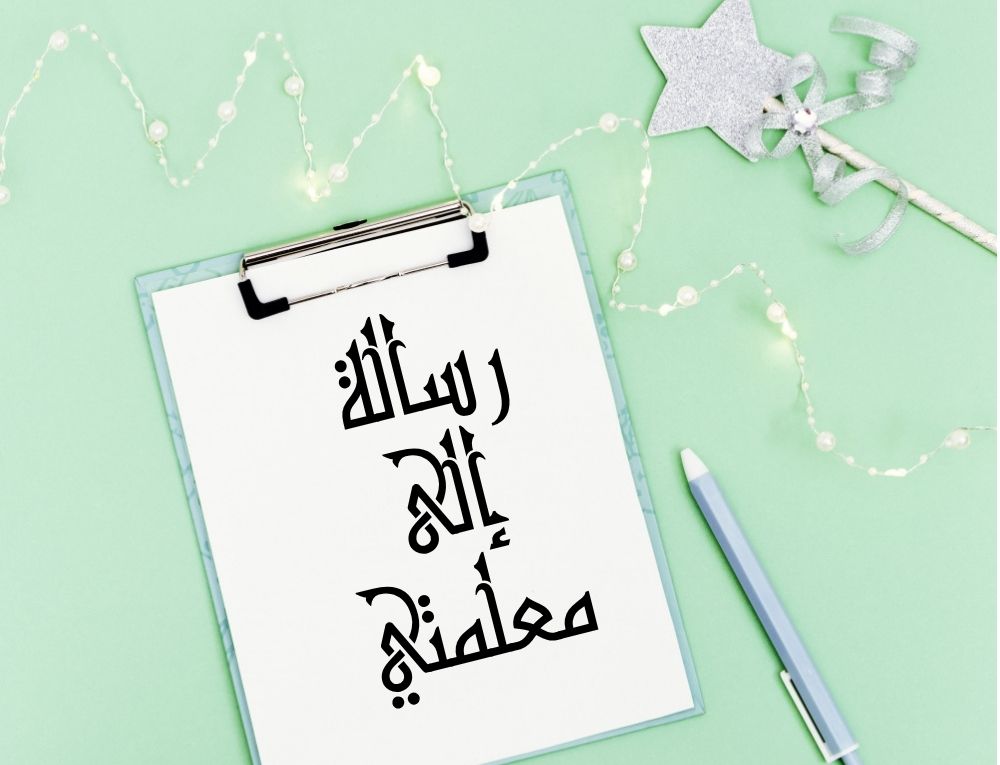 رسالة
إلى
معلمتي